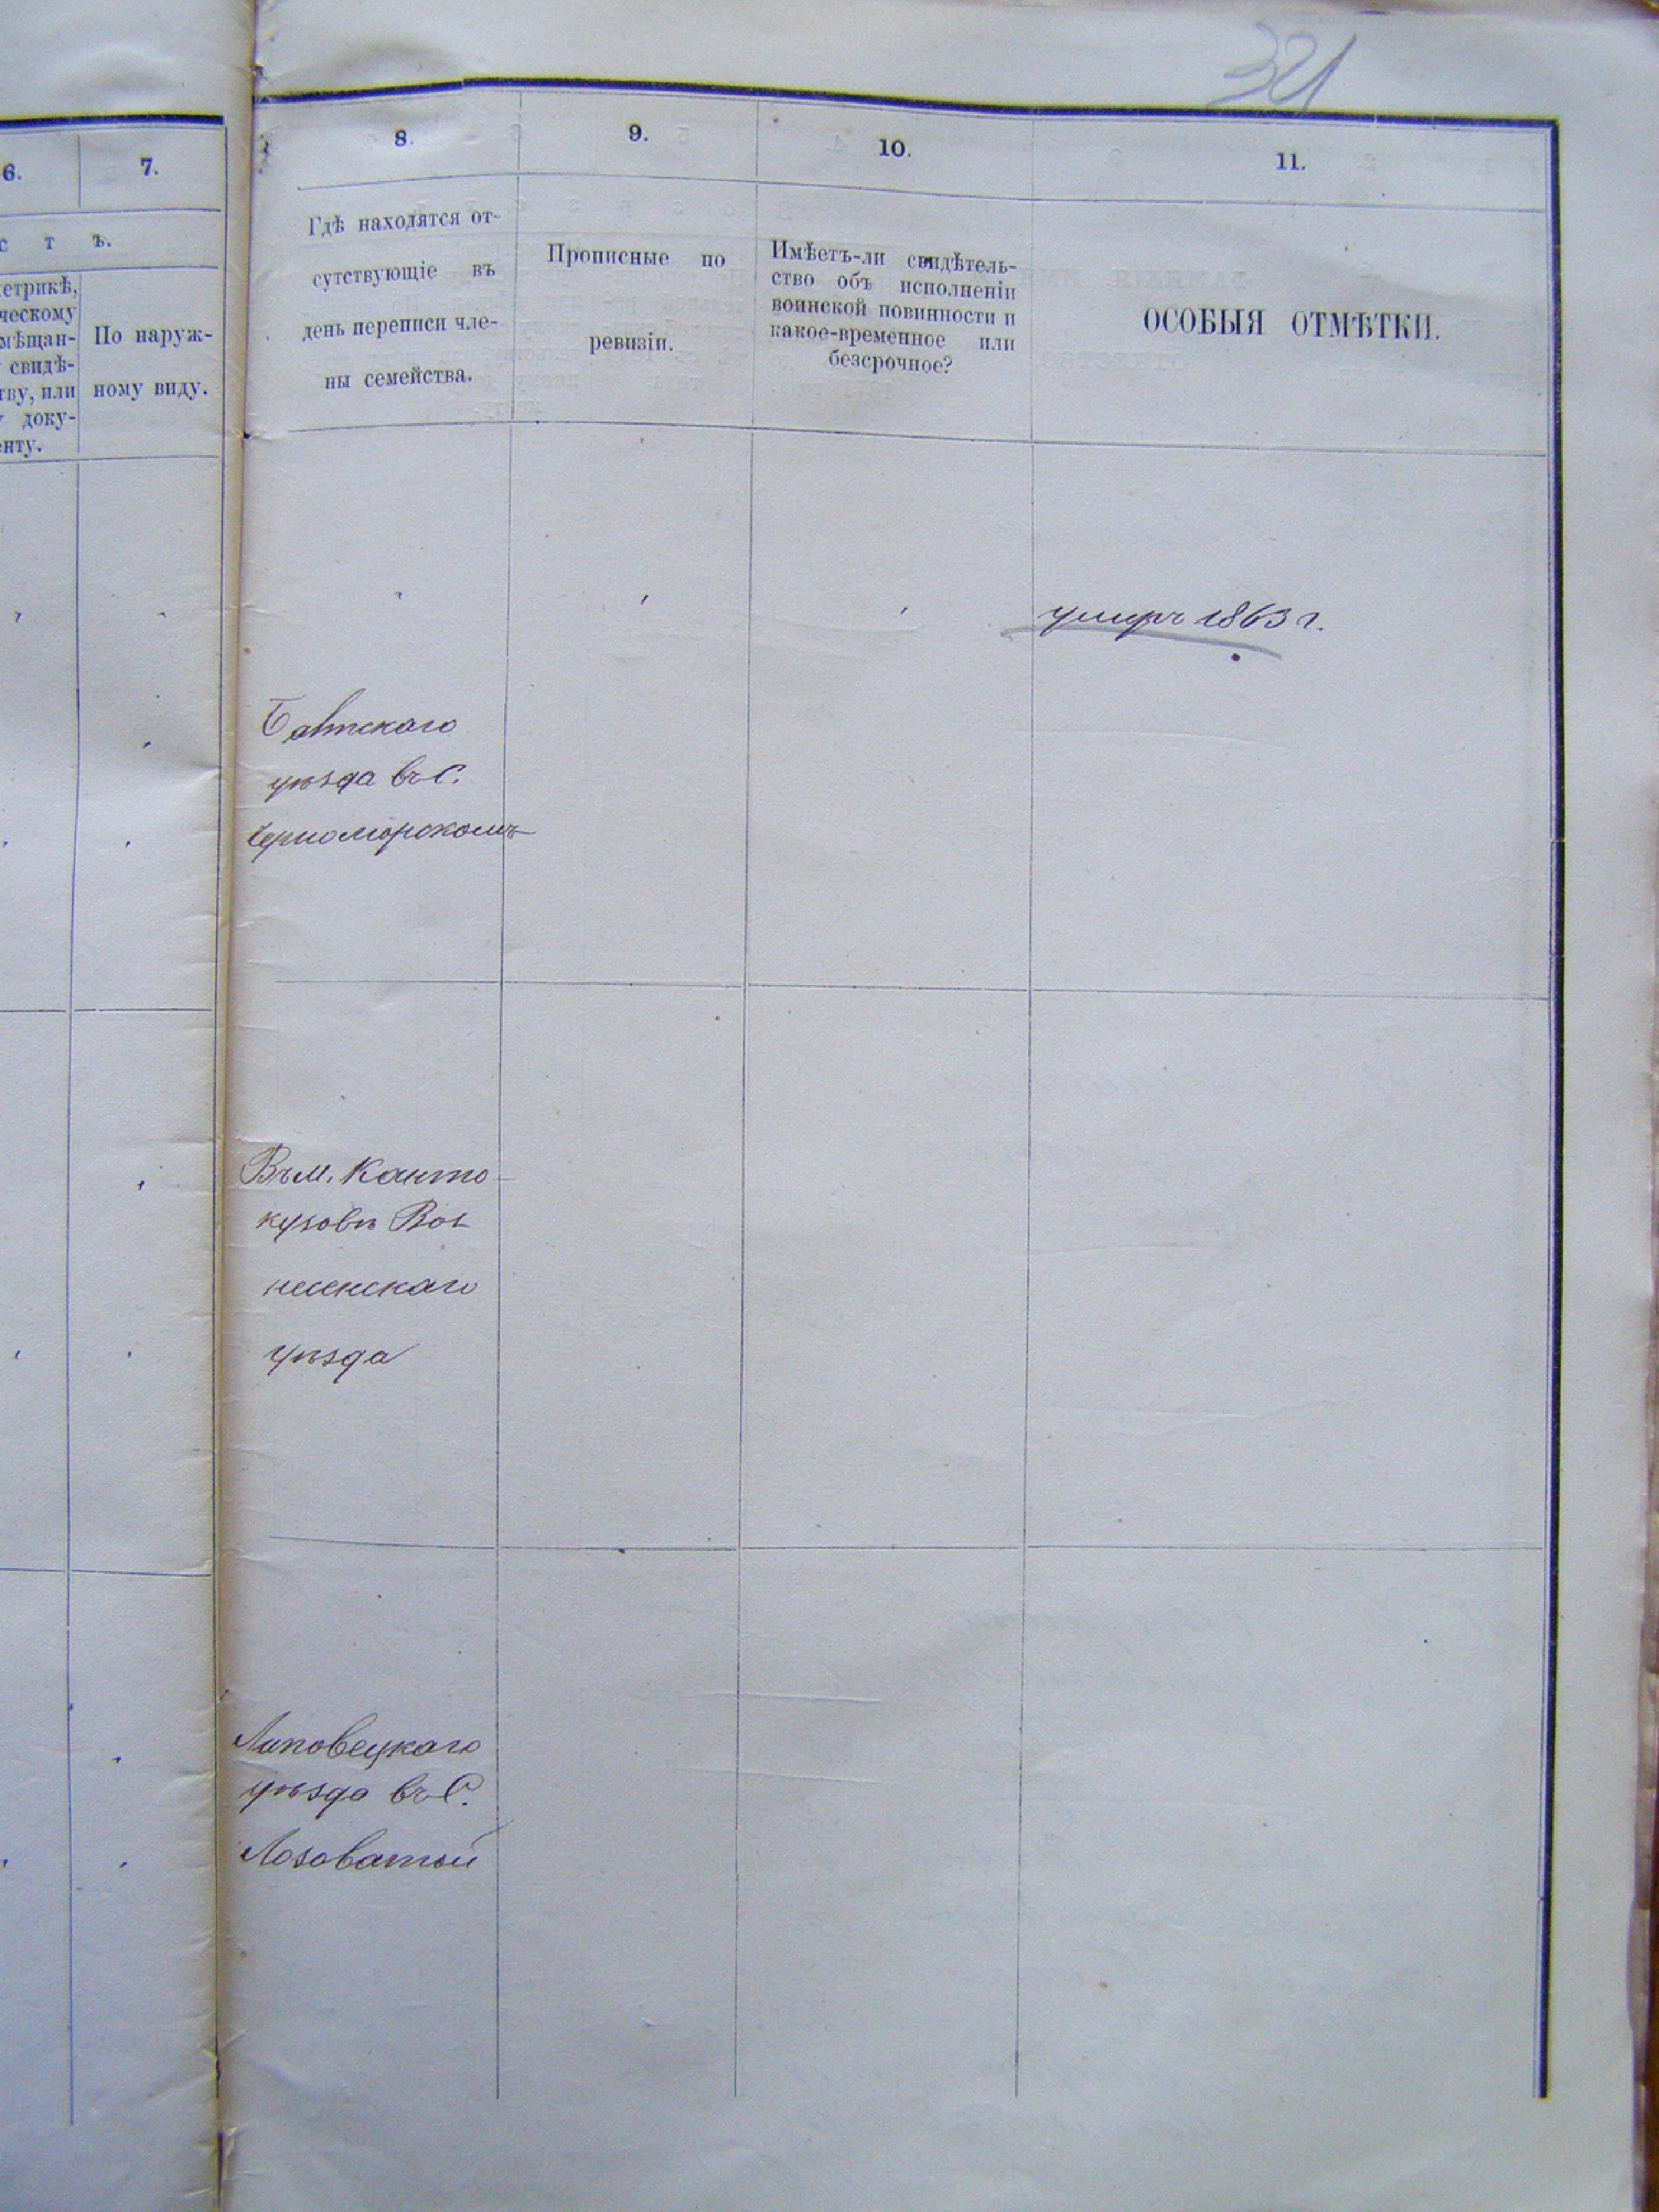 321
6.
7.
с т ъ.
етрикѣ,
ческому
мѣщан-
свидѣ-
тву, или
доку-
енту.
По наруж-
ному виду.
8.
9.
10.
11.
Гдѣ находятся от-
сутствующіе въ
день переписи чле-
ны семейства.
Прописные по
ревизіи.
Имѣетъ-ли свидѣтель-
ство объ исполненіи
воинской повинности и
какое-временное или
безсрочное?
ОСОБЫЯ ОТМѢТКИ.
умеръ 1863 г.
Балтскаго
уѣзда въ С.
Черноморскомъ
Въ м. Канто
кузовѣ Воз
несенскаго
уѣзда
Липовецкаго
уѣзда въ С.
Лозоватой